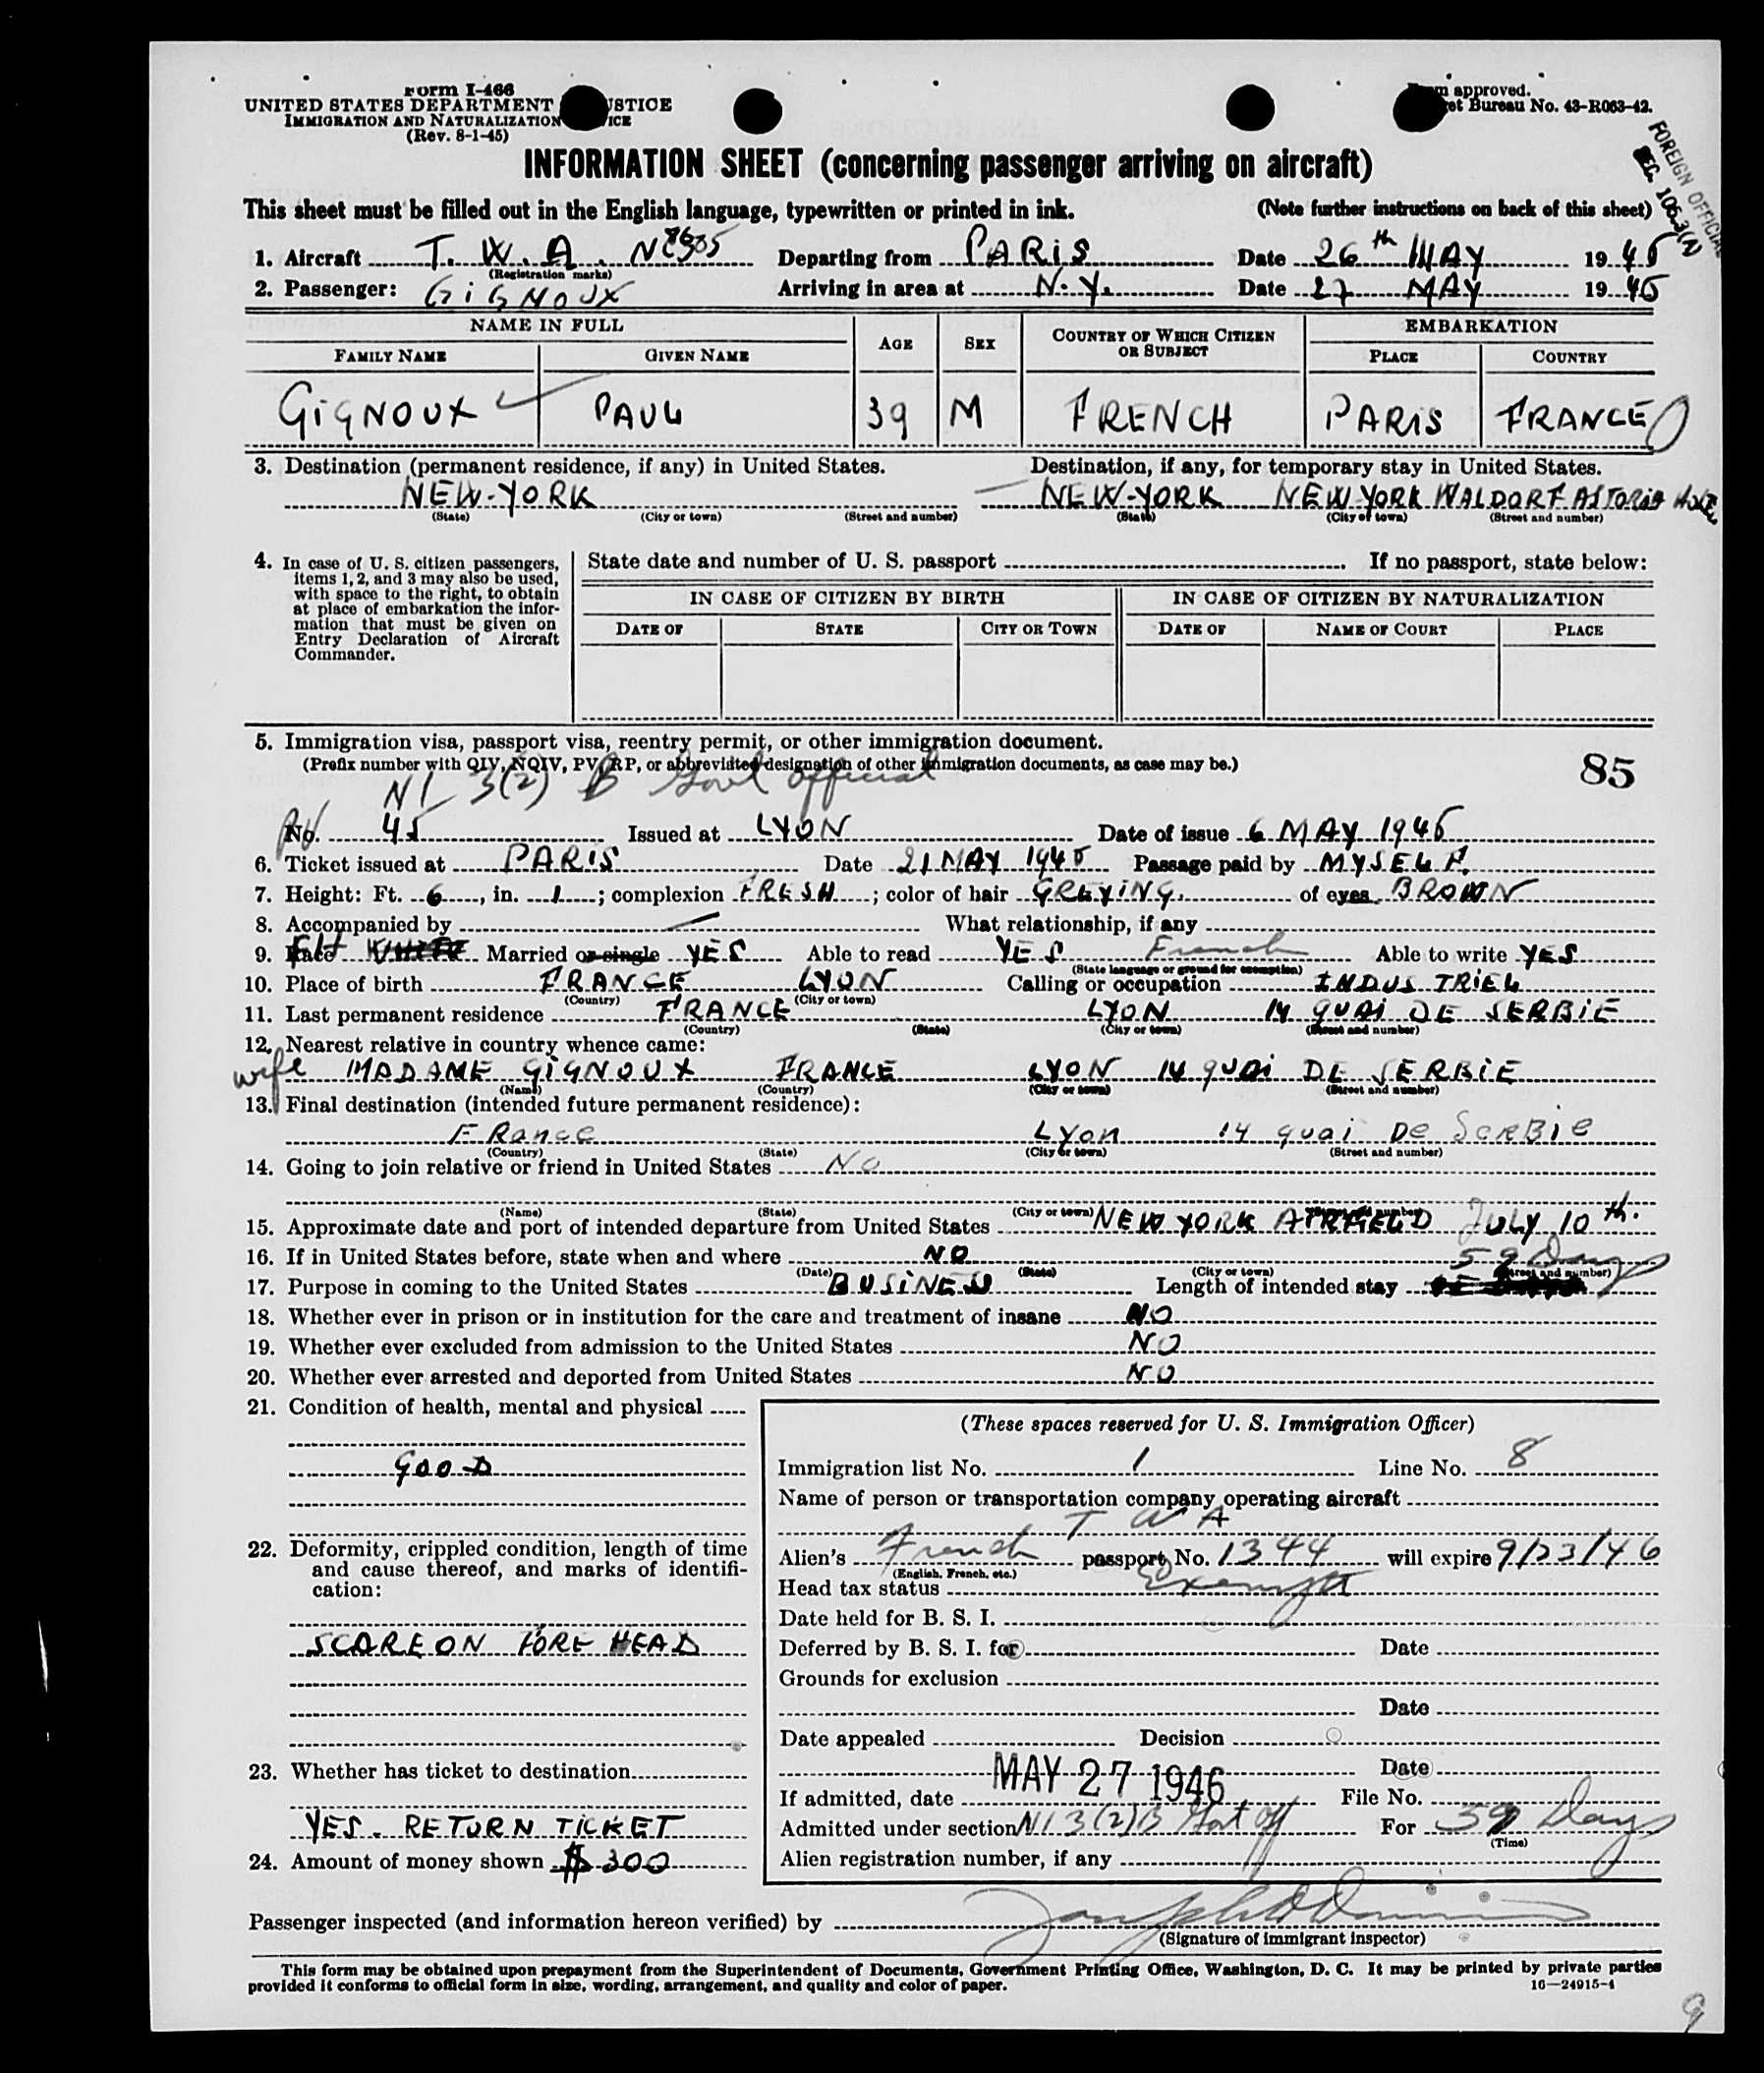 Form I-466
UNITED STATES DEPARTMENT STICE
IMMIGRATION AND NATURALIZATION ICE
(Rev. 8-1-45)
approved.
et Bureau No. 43-R063-42.
FOREIGN OFFICIAL
SEC. 106-3(A)
INFORMATION SHEET (concerning passenger arriving on aircraft)
This sheet must be filled out in the English language, typewritten or printed in ink. (Note further instructions on back of this sheet)
1. Aircraft T. W. A. Departing from PARIS Date 26th MAY 1946
(Registration marks)
2. Passenger: GIGNOUX Arriving in area at N. Y. Date 27 MAY 1946
NAME IN FULL AGE SEX COUNTRY OF WHICH CITIZEN OR SUBJECT EMBARKATION
FAMILY NAME GIVEN NAME PLACE COUNTRY
GIGNOUX PAUL 39 M FRENCH PARIS FRANCE
3. Destination (permanent residence, if any) in United States. Destination, if any, for temporary stay in United States.
NEW-YORK NEW-YORK NEW YORK WALDORF ASTORIA
(State) (City or town) (Street and number) (State) (City or town) (Street and number)
4. In case of U. S. citizen passengers, items 1, 2, and 3 may also be used, with space to the right, to obtain at place of embarkation the information that must be given on Entry Declaration of Aircraft Commander.
State date and number of U. S. passport If no passport, state below:
IN CASE OF CITIZEN BY BIRTH IN CASE OF CITIZEN BY NATURALIZATION
DATE OF STATE CITY OR TOWN DATE OF NAME OF COURT PLACE
5. Immigration visa, passport visa, reentry permit, or other immigration document.
(Prefix number with QIV, NQIV, PV, RP, or abbreviated designation of other immigration documents, as case may be.) 85
NI 3(2) B Govt official
PV No. 45 Issued at LYON Date of issue 6 MAY 1946
6. Ticket issued at PARIS Date 21 MAY 1946 Passage paid by MYSELF.
7. Height: Ft. 6, in. 1; complexion FRESH; color of hair GREYING. of eyes BROWN
8. Accompanied by — What relationship, if any
9. Race WHITE Married or single YES Able to read YES French Able to write YES
(State language or ground for exemption)
10. Place of birth FRANCE LYON Calling or occupation INDUSTRIEL
(Country) (City or town)
11. Last permanent residence FRANCE LYON 14 QUAI DE SERBIE
(Country) (State) (City or town) (Street and number)
12. Nearest relative in country whence came:
wife MADAME GIGNOUX FRANCE LYON 14 QUAI DE SERBIE
(Name) (Country) (City or town) (Street and number)
13. Final destination (intended future permanent residence):
FRance Lyon 14 quai De SeRBie
(Country) (State) (City or town) (Street and number)
14. Going to join relative or friend in United States No
(Name) (State) (City or town) (Street and number)
15. Approximate date and port of intended departure from United States NEW YORK AIRFIELD JULY 10th.
16. If in United States before, state when and where NO
(Date) (State) (City or town) (Street and number)
59 Days
17. Purpose in coming to the United States BUSINESS Length of intended stay
18. Whether ever in prison or in institution for the care and treatment of insane NO
19. Whether ever excluded from admission to the United States NO
20. Whether ever arrested and deported from United States NO
21. Condition of health, mental and physical
GOOD
22. Deformity, crippled condition, length of time and cause thereof, and marks of identification:
SCARE ON FORE HEAD
23. Whether has ticket to destination
YES. RETURN TICKET
24. Amount of money shown $ 300
(These spaces reserved for U. S. Immigration Officer)
Immigration list No. 1 Line No. 8
Name of person or transportation company operating aircraft
T W A
Alien's French passport No. 1344 will expire 9/23/46
(English, French, etc.)
Head tax status Exempt
Date held for B. S. I.
Deferred by B. S. I. for Date
Grounds for exclusion
Date
Date appealed Decision
Date
If admitted, date MAY 27 1946 File No.
Admitted under section NI 3(2)B Govt Off For 59 Days
(Time)
Alien registration number, if any
Passenger inspected (and information hereon verified) by
(Signature of immigrant inspector)
This form may be obtained upon prepayment from the Superintendent of Documents, Government Printing Office, Washington, D. C. It may be printed by private parties
provided it conforms to official form in size, wording, arrangement, and quality and color of paper. 16—24915-1
9